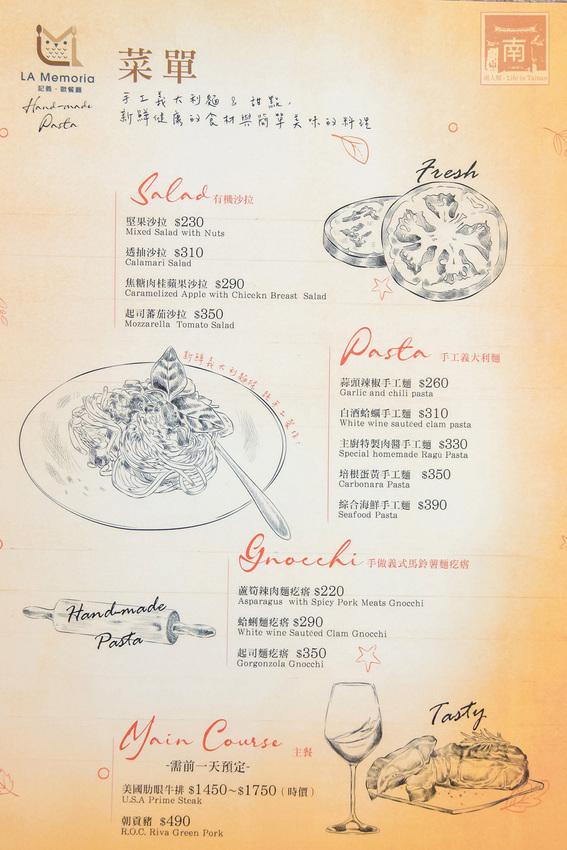 LA Memoria
記義·歐餐廳
Hand-made
Pasta
菜單
手工義大利麵 & 甜點，
新鮮健康的食材與簡單美味的料理
南
南人幫·Life in Tainan
Fresh
Salad 有機沙拉
堅果沙拉 $230
Mixed Salad with Nuts
透抽沙拉 $310
Calamari Salad
焦糖肉桂蘋果沙拉 $290
Caramelized Apple with Chicekn Breast Salad
起司蕃茄沙拉 $350
Mozzarella Tomato Salad
Pasta 手工義大利麵
蒜頭辣椒手工麵 $260
Garlic and chili pasta
白酒蛤蠣手工麵 $310
White wine sautéed clam pasta
主廚特製肉醬手工麵 $330
Special homemade Ragù Pasta
培根蛋黃手工麵 $350
Carbonara Pasta
綜合海鮮手工麵 $390
Seafood Pasta
新鮮義大利麵條
Gnocchi 手做義式馬鈴薯麵疙瘩
蘆筍辣肉麵疙瘩 $220
Asparagus with Spicy Pork Meats Gnocchi
蛤蜊麵疙瘩 $290
White wine Sautéed Clam Gnocchi
起司麵疙瘩 $350
Gorgonzola Gnocchi
Hand-made
Pasta
Main Course 主餐
-需前一天預定-
美國肋眼牛排 $1450~$1750（時價）
U.S.A Prime Steak
朝貢豬 $490
R.O.C. Riva Green Pork
Tasty